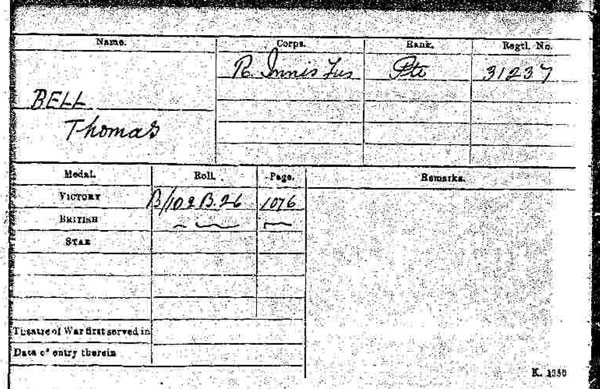 Name. Corps. Rank. Regtl. No.
R. Innis Fus Pte 31237
BELL
Thomas
Medal. Roll. Page. Remarks.
VICTORY B/102 B.26 1076
BRITISH
STAR
Theatre of War first served in
Date of entry therein
K. 1380